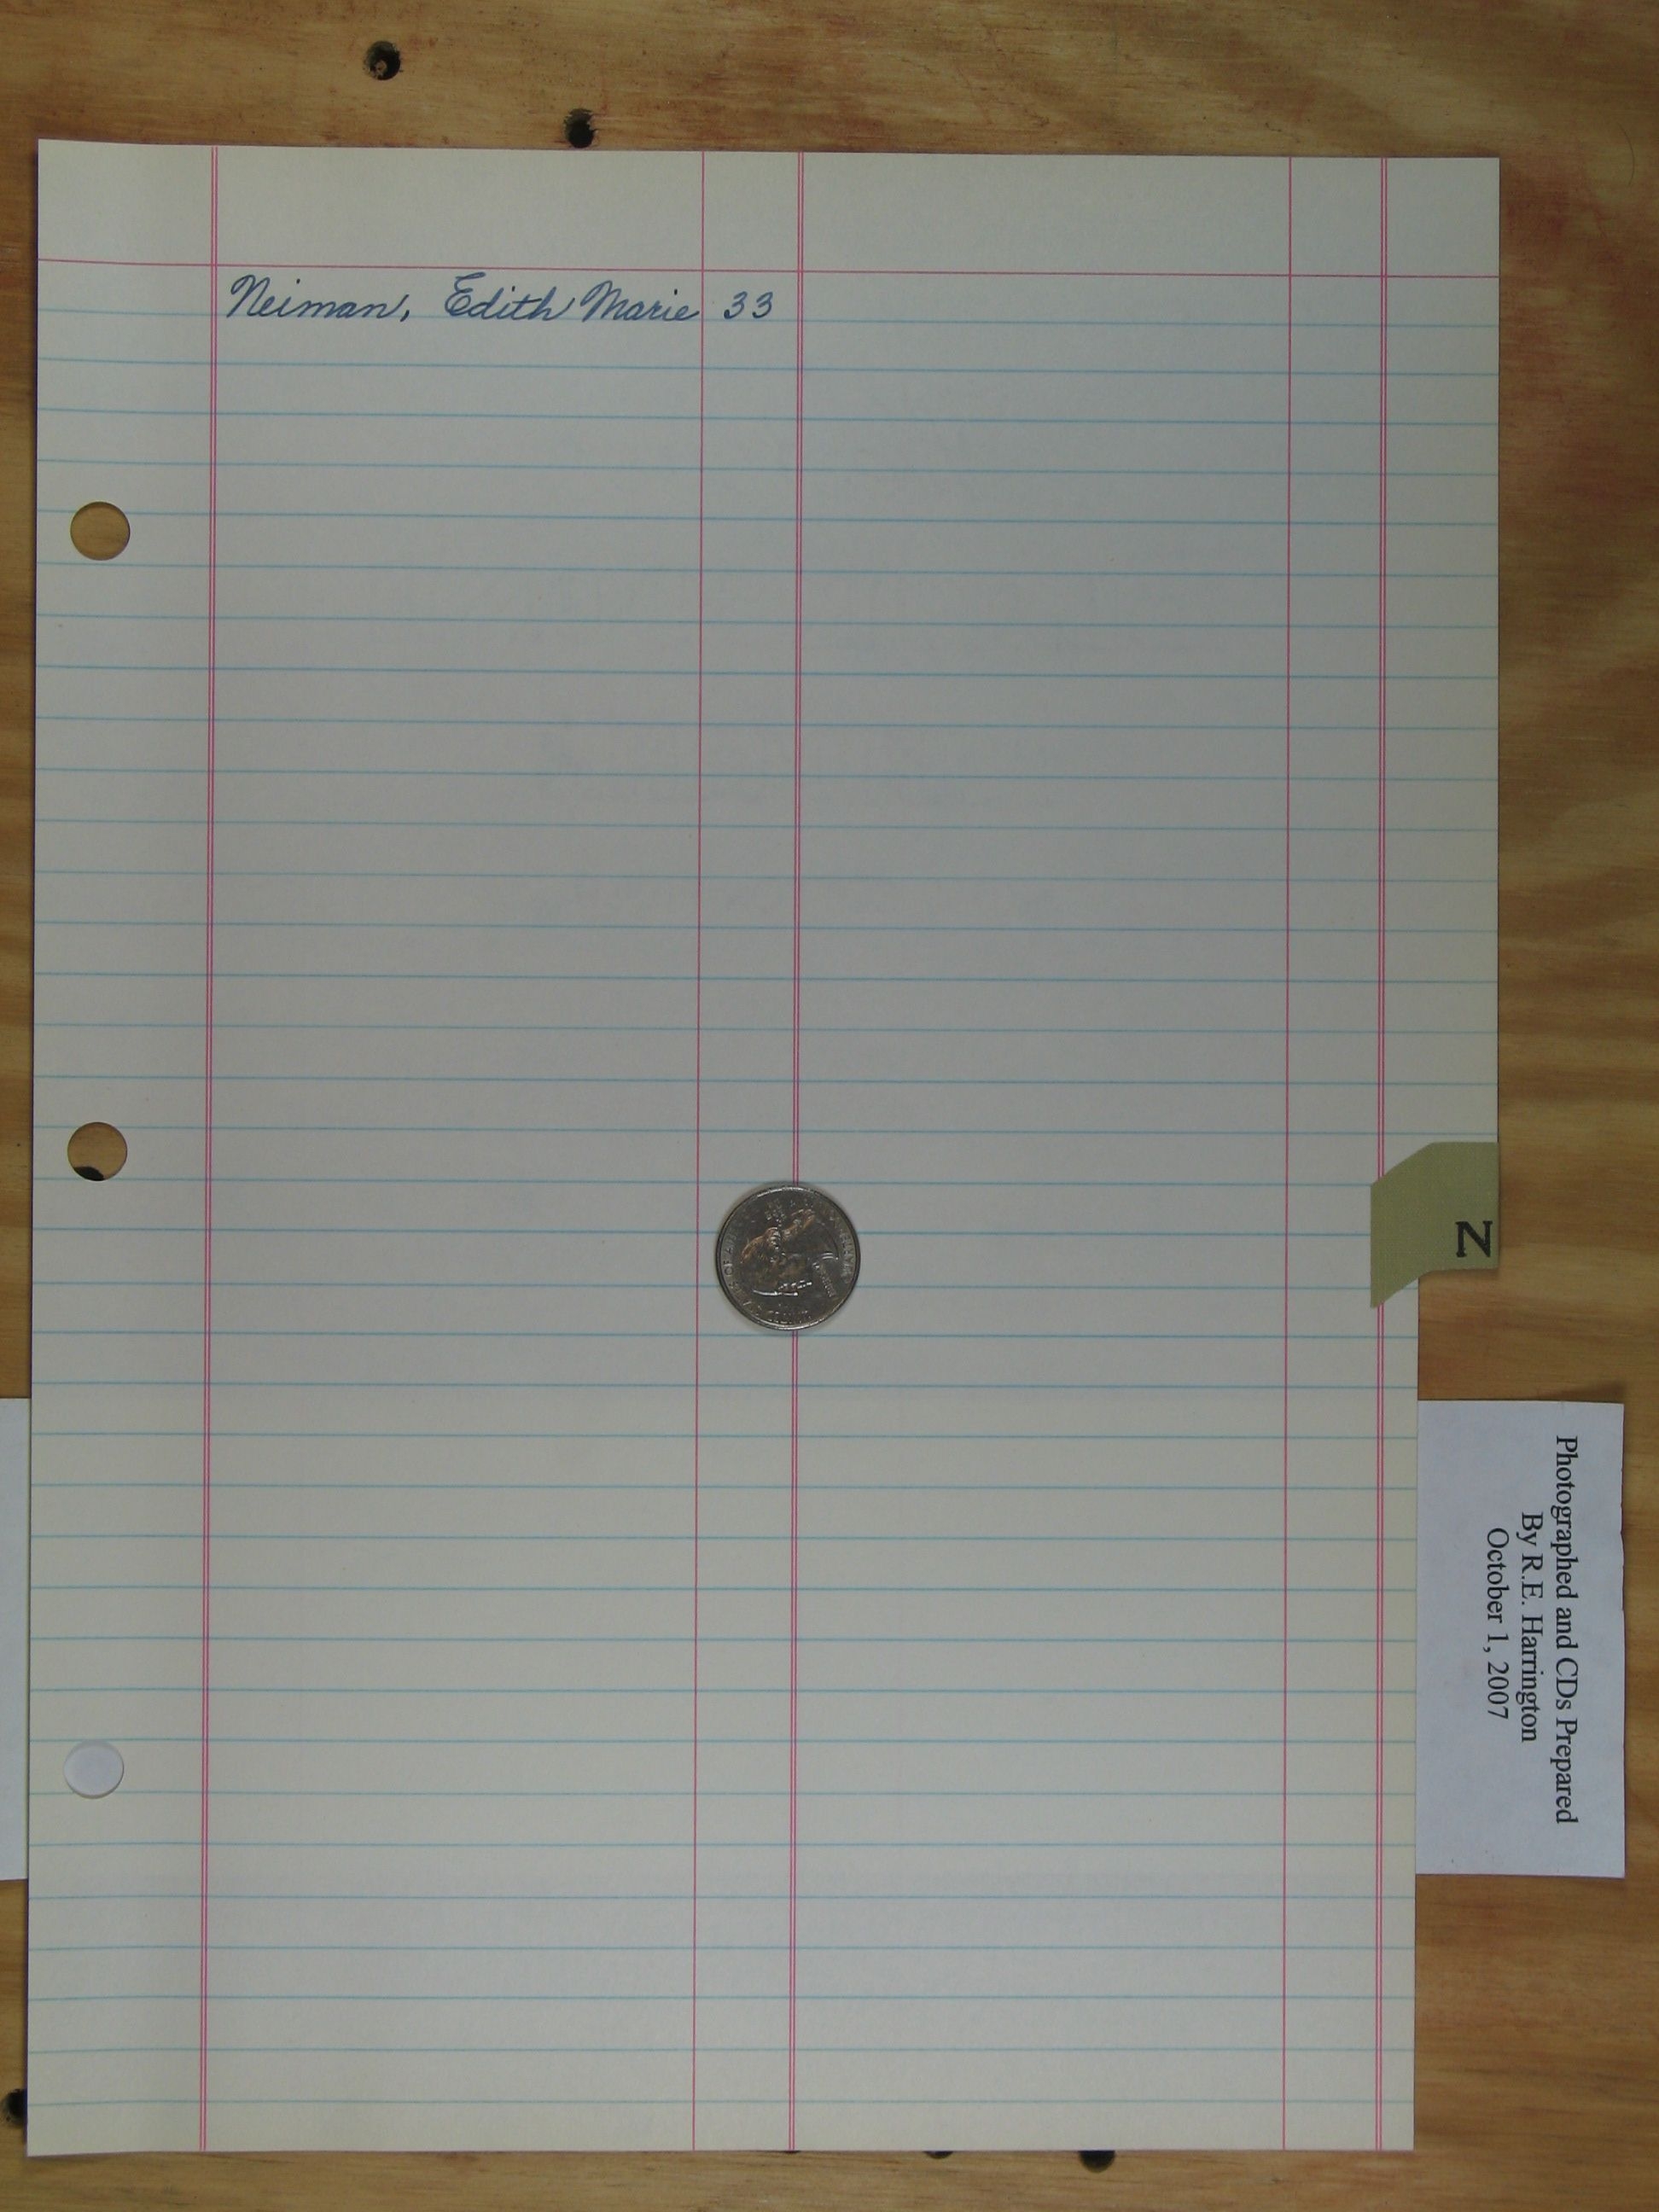 Neiman, Edith Marie 33
N
Photographed and CDs Prepared
By R.E. Harrington
October 1, 2007